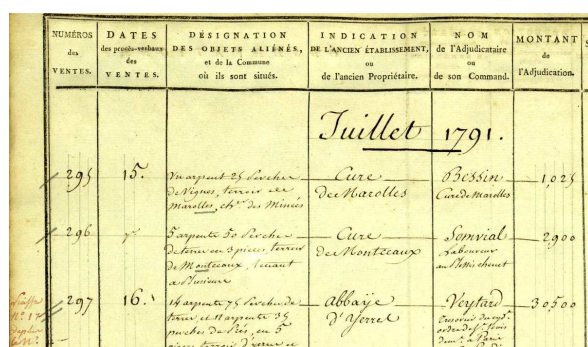 NUMÉROS
des
VENTES.
DATES
des procès-verbaux
des
VENTES.
DÉSIGNATION
DES OBJETS ALIÉNÉS,
et de la Commune
où ils sont situés.
INDICATION
DE L'ANCIEN ÉTABLISSEMENT,
ou
de l'ancien Propriétaire.
NOM
de l'Adjudicataire
ou
de son Command.
MONTANT
de
l'Adjudication.
Juillet 1791.
295
15.
Un arpent 25 Perches
de Vignes, terroir de
Marolles, ch.er des Minées
Cure
de Marolles
Bessin
Curé de Marolles
1,025
296
5 arpents 50 Perches
de terre en 3 pieces, terroir
de Montceaux, tenant
a Plusieurs
Cure
de Montceaux
Somvial
Laboureur
au Plessis chenet
2,900
297
16.
14 arpents 75 Perches de
terre, et 11 arpents 35
perches de Prés, en 5
pieces terroir d'yerre et
Abbaÿe
d'Yerres
Veytard
30,500